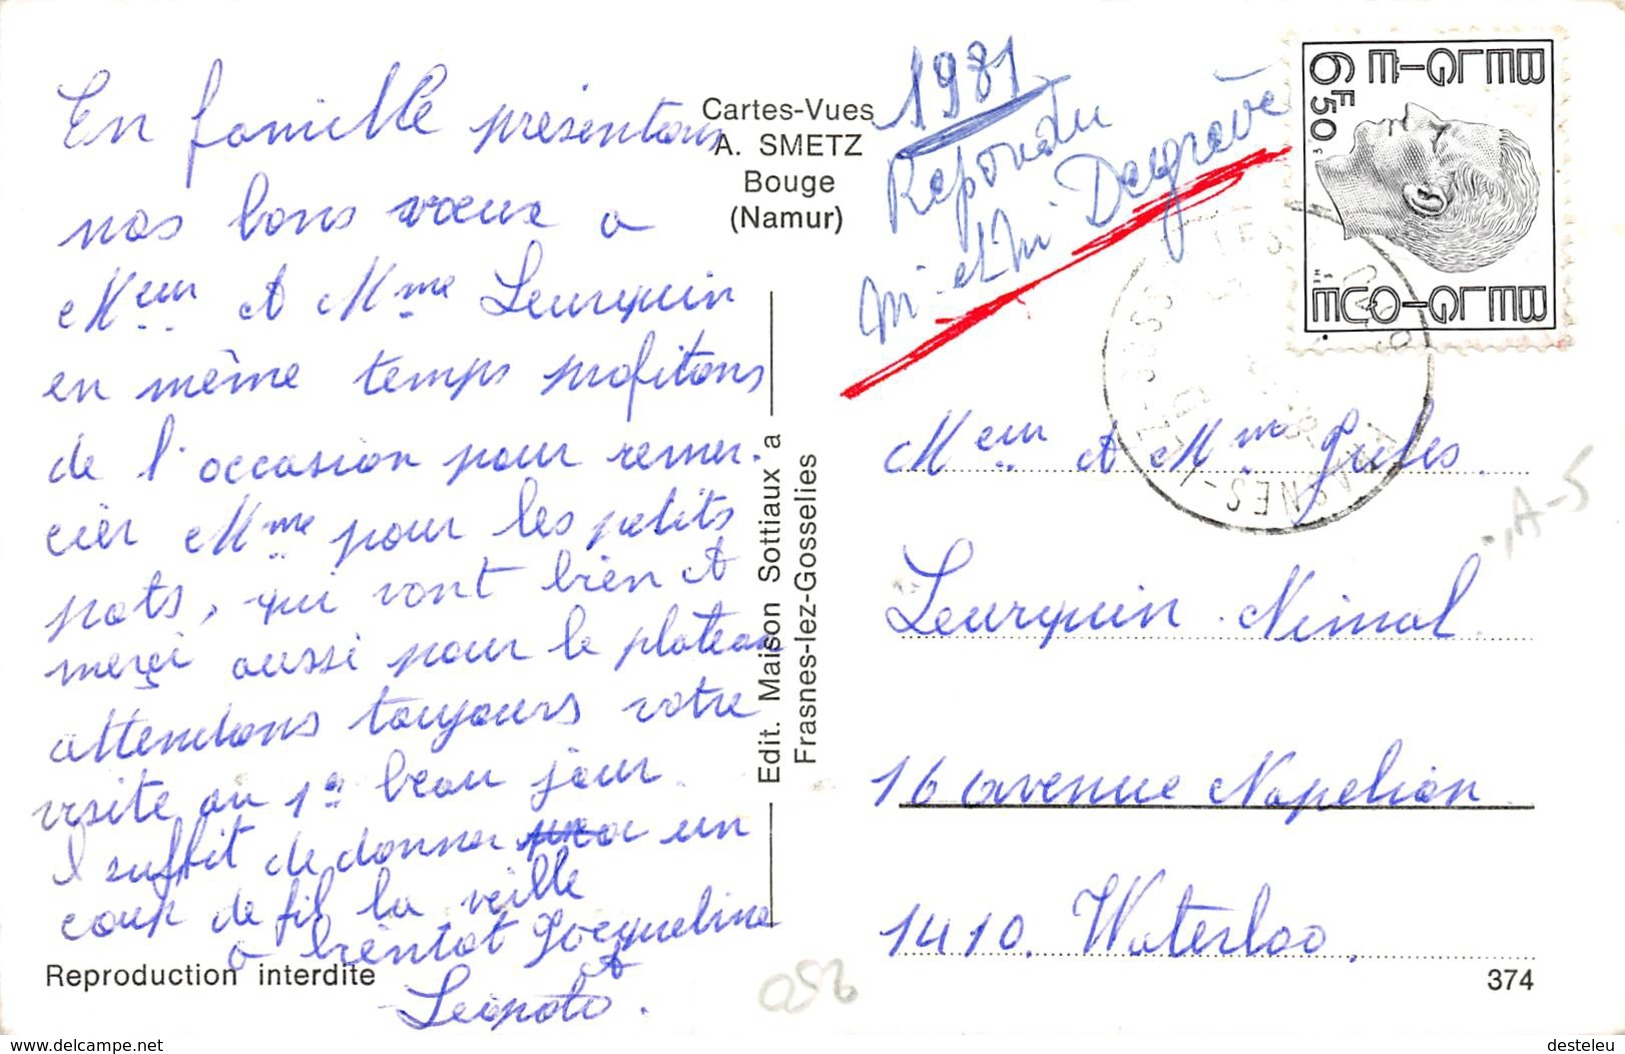 En famille présentons
nos bons vœux a
Meur et Mme Leurquin
en même temps profitons
de l'occasion pour remer-
cier Mme pour les petits
pots, qui vont bien et
merci aussi pour le plateau
attendons toujours votre
visite au 1er beau jour
Il suffit de donner un
coup de fil la veille
a bientot Jacqueline
et
Léopold.
Reproduction interdite
Cartes-Vues
A. SMETZ
Bouge
(Namur)
Edit. Maison Sottiaux a
Frasnes-lez-Gosselies
1981
Repondu
M et M Dagrave
BELGIE
6F50
BELGIQUE
Meur et Mme Jules
Leurquin Nimal
16 avenue Napeléon
1410. Waterloo.
374
A-5
056
www.delcampe.net
desteleu